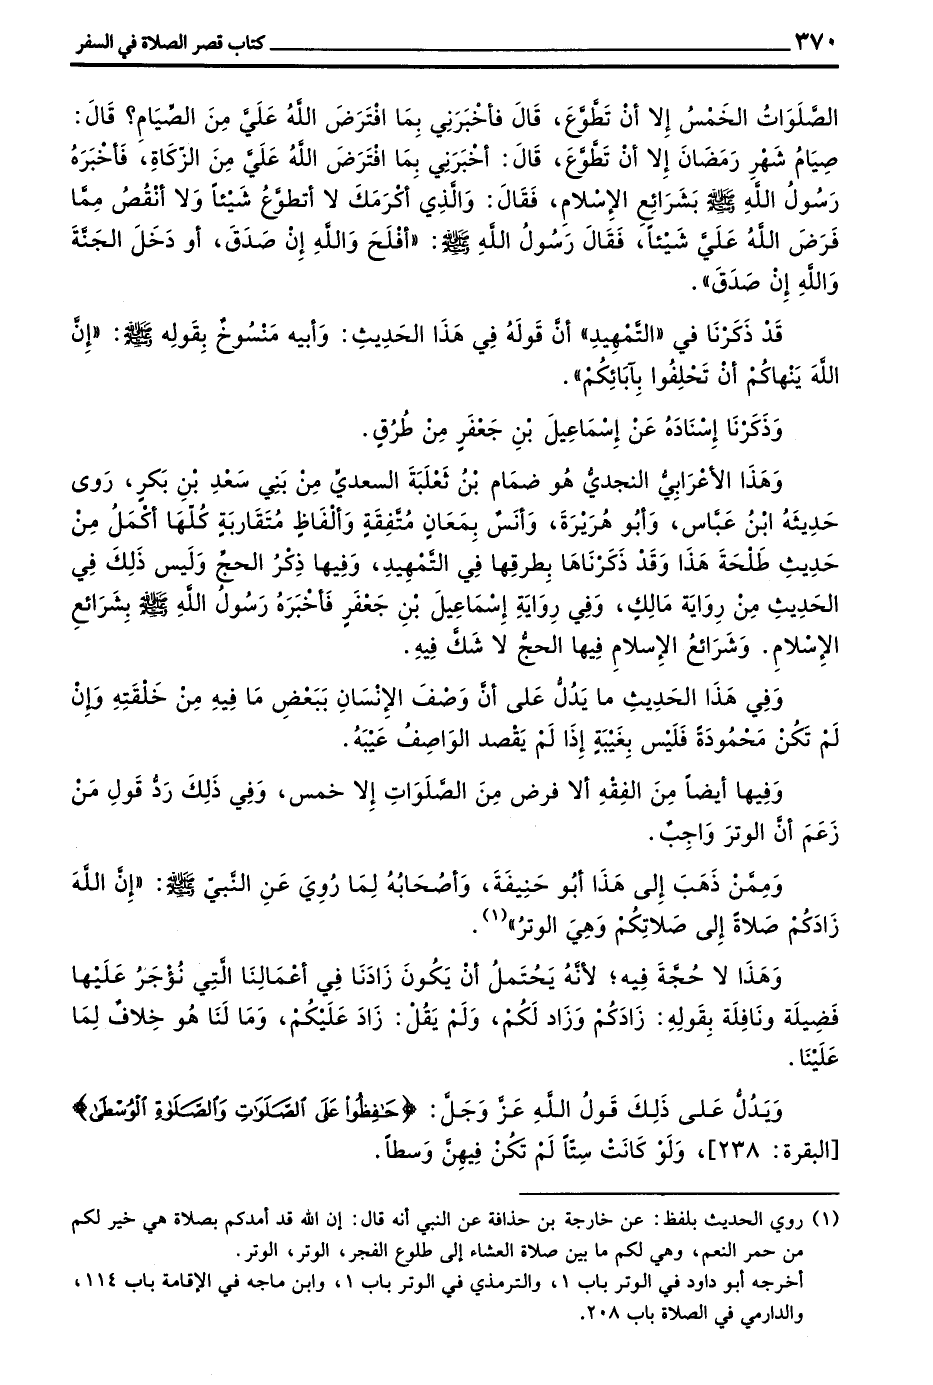 ٣٧٠ ـــــــــــــــــــــــــــــــــــــــ كتاب قصر الصلاة في السفر
الصَّلَوَاتُ الخَمْسُ إِلا أنْ تَطَّوَّعَ، قَالَ فأخْبَرَنِي بِمَا افْتَرَضَ اللَّهُ عَلَيَّ مِنَ الصِّيَامِ؟ قَالَ:
صِيَامُ شَهْرِ رَمَضَانَ إِلا أنْ تَطَّوَّعَ، قَالَ: أخْبَرَنِي بِمَا افْتَرَضَ اللَّهُ عَلَيَّ مِنَ الزَّكَاةِ، فَأخْبَرَهُ
رَسُولُ اللَّهِ ﷺ بَشَرَائِعِ الإِسْلامِ، فَقَالَ: وَالَّذِي أكْرَمَكَ لا أتطوَّعُ شَيْئاً وَلا أنْقُصُ مِمَّا
فَرَضَ اللَّهُ عَلَيَّ شَيْئاً، فَقَالَ رَسُولُ اللَّهِ ﷺ: «أفْلَحَ وَاللَّهِ إِنْ صَدَقَ، أو دَخَلَ الجَنَّةَ
وَاللَّهِ إِنْ صَدَقَ».
قَدْ ذَكَرْنَا في «التَّمْهِيدِ» أنَّ قَولَهُ فِي هَذَا الحَدِيثِ: وَأبيه مَنْسُوخٌ بِقَولِه ﷺ: «إِنَّ
اللَّهَ يَنْهاكُمْ أنْ تَحْلِفُوا بِآبَائِكُمْ».
وَذَكَرْنَا إِسْنَادَهُ عَنْ إِسْمَاعِيلَ بْنِ جَعْفَرٍ مِنْ طُرُقٍ.
وَهَذَا الأعْرَابِيُّ النجديُّ هُو ضمَام بْنُ ثَعْلَبَةَ السعديِّ مِنْ بَنِي سَعْدِ بْنِ بَكرٍ، رَوى
حَدِيثَهُ ابْنُ عَبَّاس، وَأبُو هُرَيْرَةَ، وَأنَسٌ بِمَعَانٍ مُتَّفِقَةٍ وَألْفَاظٍ مُتَقَارِبَةٍ كُلّهَا أكْمَلُ مِنْ
حَدِيثِ طَلْحَةَ هَذَا وَقَدْ ذَكَرْنَاهَا بِطرقِها فِي التَّمْهِيدِ، وَفِيها ذِكْرُ الحجِّ وَلَيس ذَلِكَ فِي
الحَدِيثِ مِنْ رِوَايَة مَالِكٍ، وَفِي رِوَايَةِ إِسْمَاعِيلَ بْنِ جَعْفَرٍ فَأخْبَرَهُ رَسُولُ اللَّهِ ﷺ بِشَرَائِعِ
الإِسْلامِ. وَشَرَائعُ الإِسلامِ فِيها الحجُّ لا شَكَّ فِيهِ.
وَفِي هَذَا الحَدِيثِ ما يَدُلُّ عَلى أنَّ وَصْفَ الإِنْسَانِ بِبَعْضِ مَا فِيه مِنْ خَلْقَتِهِ وَإِنْ
لَمْ تَكُنْ مَحْمُودَةً فَلَيْس بِغَيْبَةٍ إِذَا لَمْ يَقْصد الوَاصِفُ عَيْبَهُ.
وَفِيها أيضاً مِنَ الفِقْهِ ألا فرض مِنَ الصَّلَوَاتِ إِلا خمس، وَفِي ذَلِكَ رَدُّ قَولِ مَنْ
زَعَمَ أنَّ الوترَ وَاجِبٌ.
وَمِمَّنْ ذَهَبَ إِلى هَذَا أبُو حَنِيفَةَ، وَأصْحَابُهُ لِمَا رُوِيَ عَنِ النَّبيّ ﷺ: «إِنَّ اللَّهَ
زَادَكُمْ صَلاةً إِلى صَلاتِكُمْ وَهِيَ الوترُ»(١).
وَهَذَا لا حُجَّةَ فِيه؛ لأنَّهُ يَحْتَملُ أنْ يَكُونَ زَادَنَا فِي أعْمَالِنَا الَّتِي نُؤْجَرُ عَلَيْها
فَضِيلَة ونَافِلَة بِقَولِهِ: زَادَكُمْ وَزَاد لَكُمْ، وَلَمْ يَقُلْ: زَادَ عَلَيْكُمْ، وَمَا لَنَا هُو خِلافٌ لِمَا
عَلَيْنَا.
وَيَدُلُّ عَلى ذَلِكَ قَولُ اللَّهِ عَزَّ وَجَلَّ: ﴿حَٰفِظُوا۟ عَلَى ٱلصَّلَوَٰتِ وَٱلصَّلَوٰةِ ٱلْوُسْطَىٰ﴾
[البقرة: ٢٣٨]، وَلَوْ كَانَتْ سِتّاً لَمْ تَكُنْ فِيهِنَّ وَسطاً.
(١) روي الحديث بلفظ: عن خارجة بن حذافة عن النبي أنه قال: إن الله قد أمدكم بصلاة هي خير لكم
من حمر النعم، وهي لكم ما بين صلاة العشاء إلى طلوع الفجر، الوتر، الوتر.
أخرجه أبو داود في الوتر باب ١، والترمذي في الوتر باب ١، وابن ماجه في الإقامة باب ١١٤،
والدارمي في الصلاة باب ٢٠٨.